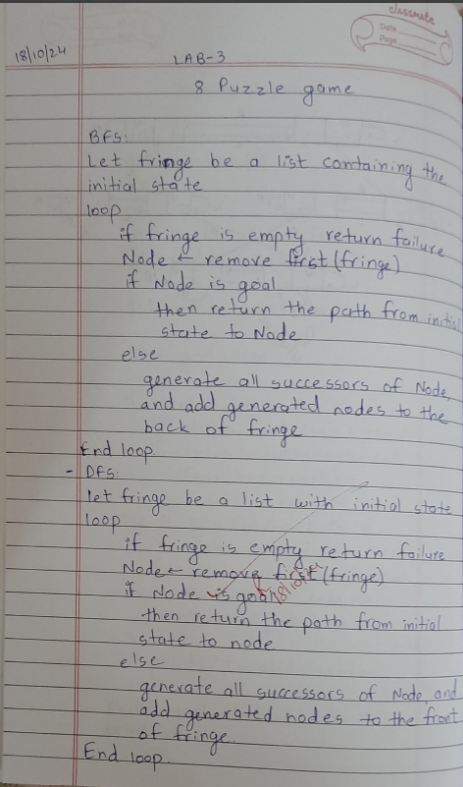 classmate
Date
Page
18/10/24
LAB-3
8 Puzzle game
BFS:
Let fringe be a list containing the
initial state
loop
if fringe is empty return failure
Node ← remove first (fringe)
if Node is goal
then return the path from initial
state to Node
else
generate all successors of Node,
and add generated nodes to the
back of fringe
End loop
- DFS:
Let fringe be a list with initial state
loop
if fringe is empty return failure
Node ← remove first (fringe)
if Node is goal
then return the path from initial
state to node
else
generate all successors of Node, and
add generated nodes to the front
of fringe.
End loop.